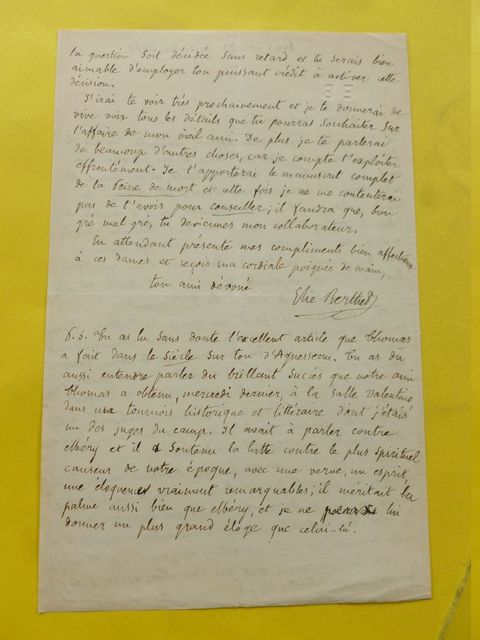 la question soit décidée sans retard et tu serais bien
aimable d'employer ton puissant crédit à activer cette
décision.
J'irai te voir très prochainement et je te donnerai de
vive voix tous les détails que tu pourras souhaiter sur
l'affaire de mon vieil ami. De plus je te parlerai
de beaucoup d'autres choses, car je compte t'exploiter
effrontément. Je t'apporterai le manuscrit complet
de la Peine de mort et cette fois je ne me contenterai
pas de t'avoir pour conseiller; il faudra que, bon
gré mal gré, tu deviennes mon collaborateur.
En attendant présente mes compliments bien affectueux
à ces dames et reçois ma cordiale poignée de main,
ton ami dévoué
Elie Berthet
P. S. Tu as lu sans doute l'excellent article que Thomas
a fait dans le Siècle sur ton d'Aguesseau. Tu as du
aussi entendre parler du brillant succès que notre ami
Thomas a obtenu, mercredi dernier, à la Salle Valentino
dans un tournois historique et littéraire dont j'étais
un des juges du camp. Il avait à parler contre
Méry et il a soutenu la lutte contre le plus spirituel
causeur de notre époque, avec une verve, un esprit
une éloquence vraiment remarquables; il méritait la
palme aussi bien que Méry, et je ne lui
donner un plus grand éloge que celui-là.